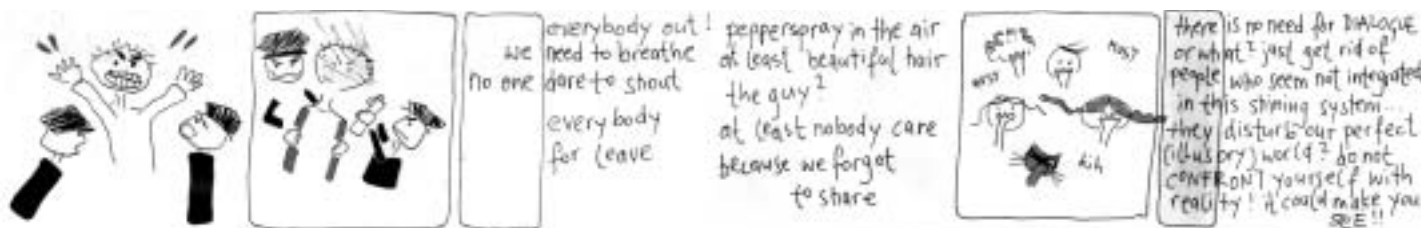 everybody out!
we need to breathe
no one dare to shout
everybody
for leave
pepperspray in the air
at least beautiful hair
the guy?
at least nobody care
because we forgot
to share
HOST
HOST
hih
there is no need for DIALOGUE
or what? just get rid of
people who seem not integrated
in this shining system...
they disturb our perfect
(illusory) world? do not
CONFRONT yourself with
reality! it could make you
SEE!!